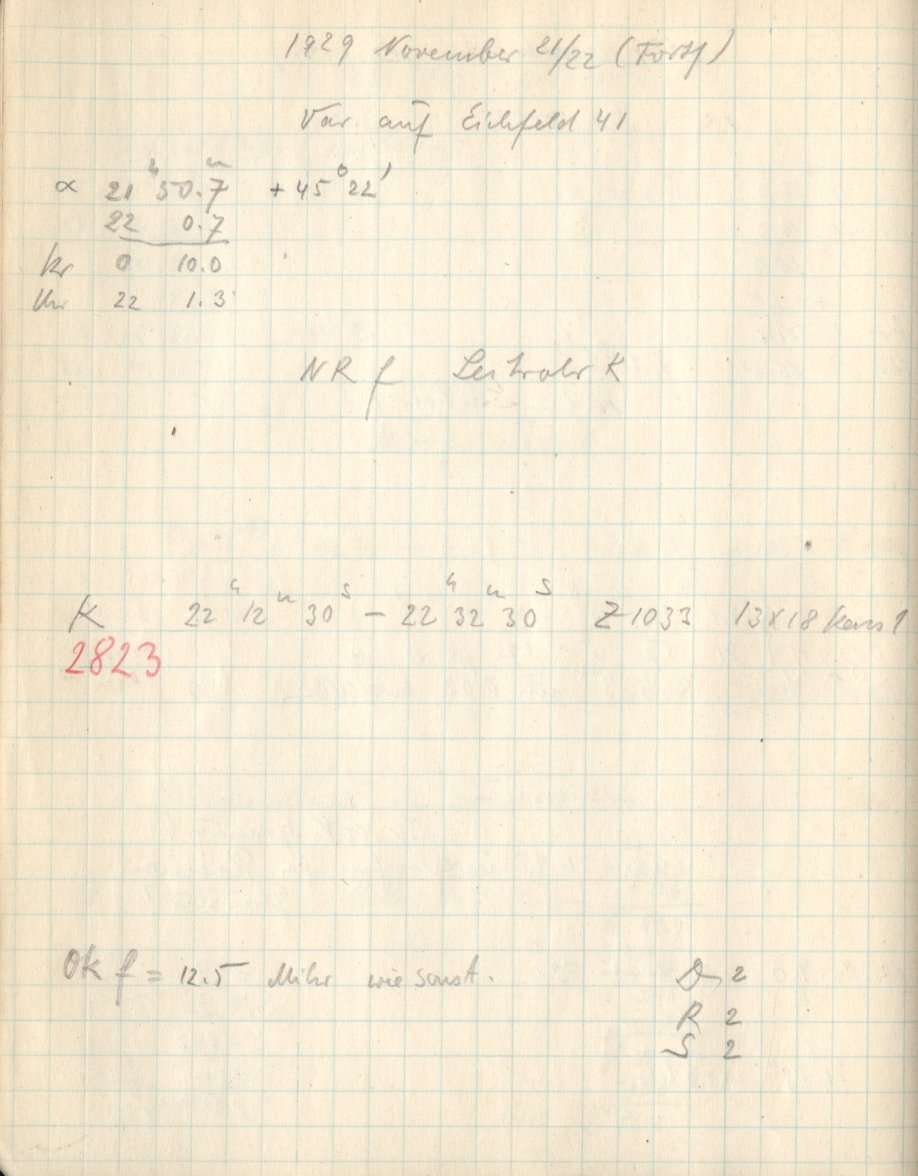 1929 November 21/22 (Forts)
Var. auf Eichfeld 41
α 21ʰ50.7ᵐ +45°22'
22 0.7
kr 0 10.0
Uhr 22 1.3
NR f Leitrohr K
K 22ʰ12ᵐ30ˢ – 22ʰ32ᵐ30ˢ Z1033 13x18
2823
OK f = 12.5 Mikr wie sonst. D 2
R 2
S 2